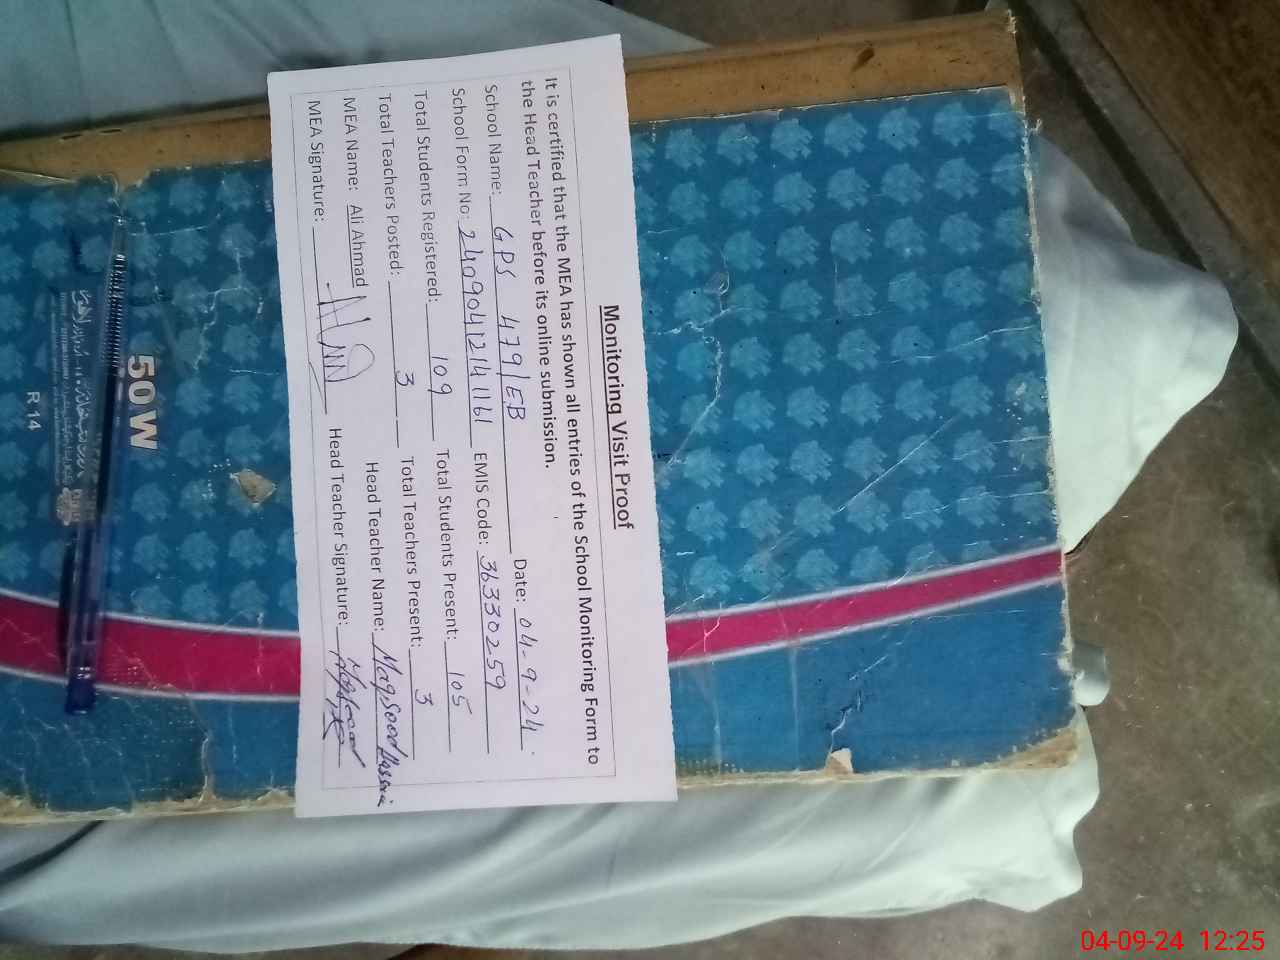 Monitoring Visit Proof
It is certified that the MEA has shown all entries of the School Monitoring Form to
the Head Teacher before its online submission.
School Name: GPS 479/EB Date: 04-9-24.
School Form No: 24090412141161 EMIS Code: 36330259
Total Students Registered: 109 Total Students Present: 105
Total Teachers Posted: 3 Total Teachers Present: 3
MEA Name: Ali Ahmad Head Teacher Name: Maqsood
MEA Signature: Head Teacher Signature: Maqsood
50 W
R 14
04-09-24 12:25